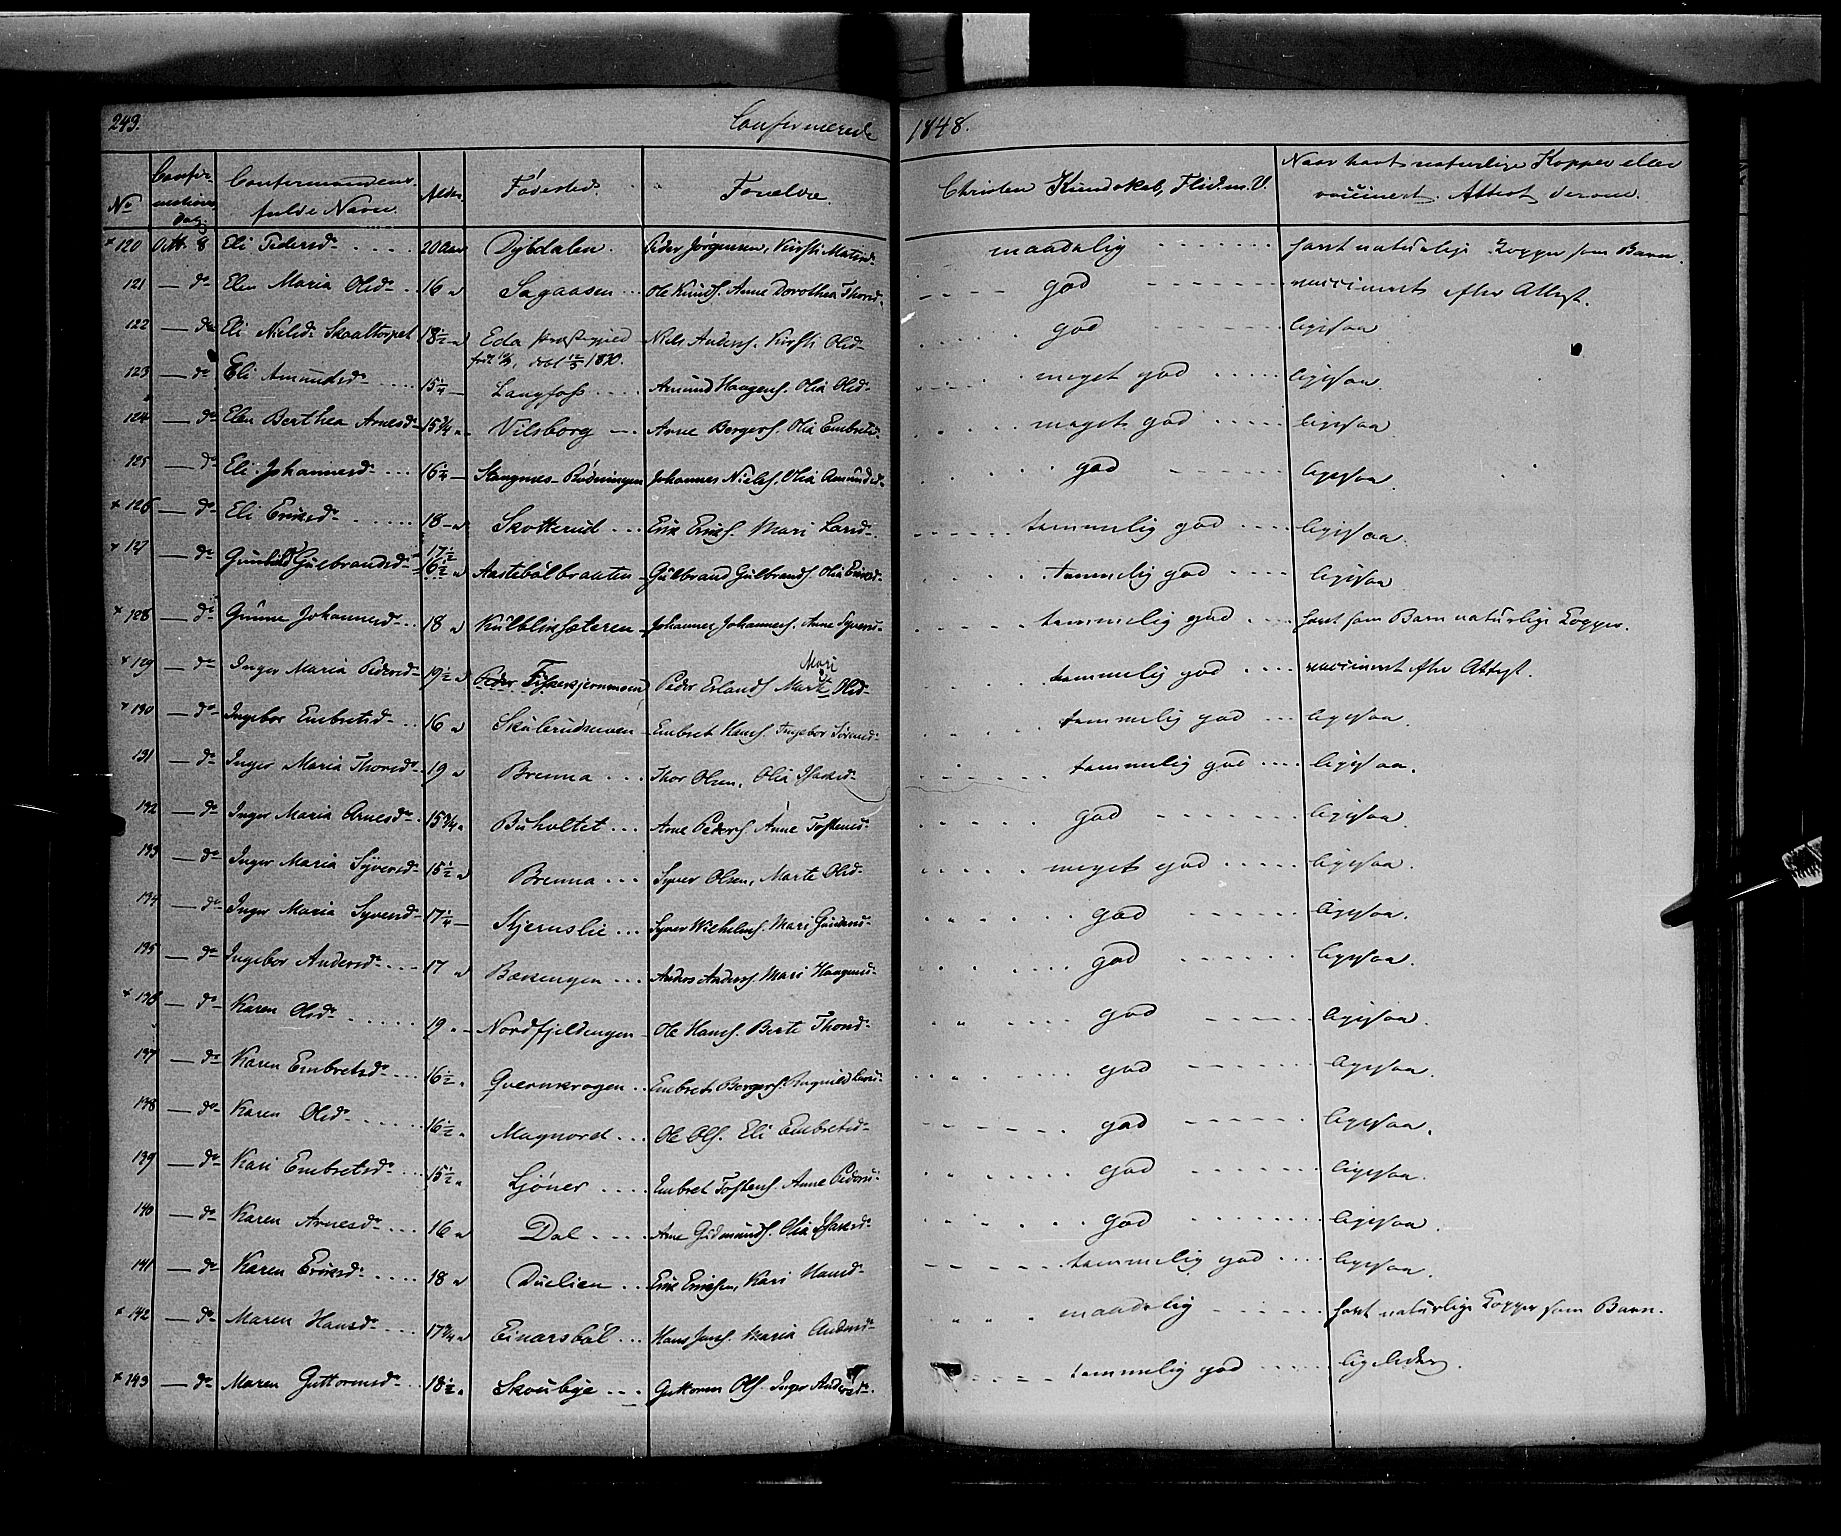 249. Confirmerede 1848.
No Confirmations Dag. Confirmandens fulde Navn. Alder. Fødested. Forældre. Christen Kundskab, Flid m. V. Naar havt naturlige Kopper eller vaccineret. Attest derom.
* 120 Octb 8 Eli Pedersd. 20 Aar Dybdalen. Peder Jørgensen, Kirsti Matisd. maadelig havt naturlige Kopper som Barn.
121 — do Elen Maria Olsd. 16 " Sagaasen Ole Knuds. Anne Dorothea Thorsd. god vaccineret efter Attest.
122 — do Eli Nielsd. Skaaltorpet 18½ " Eda Præstegjed Niels Anders. Kirsti Olsd. god ligesaa
1830.
123 — do Eli Amundsd. 15¼ — Langfoss Amund Haagens. Olia Olsd. meget god ligesaa
124 — do Elen Berthea Arnesd. 15¾ " Vilsborg Arne Bergers. Olia Embretsd. meget god ligesaa
125 — do Eli Johannesd. 16¼ — Stangnes-Rødningen Johannes Niels. Olia Amundsd. god ligesaa
* 126 — do Eli Eriksd. 18 — " Skotterud Erik Eriks. Mari Larsd. temmelig god ligesaa
* 127 — do Gunhild Gulbrandsd. 17½ 16½ " Aastebølbraaten Gulbrand Gulbrands. Olia Eriksd. temmelig god ligesaa
* 128 — do Grunne Johannesd. 18 " Kulblikseteren Johannes Johannes. Anne Syversd. temmelig god havt som Barn naturlige Kopper.
* 129 — do Inger Maria Pedersd. 19½ " Peder Fiskekjernmoen Peder Erlands. Marte Mari Olsd. temmelig god vaccineret efter Attest.
* 130 — do Ingebor Embretsd. 16 " Skulerudmoen Embret Hans. Ingebor Simensd. temmelig god ligesaa.
131 — do Inger Maria Thorsd. 19 " Brenna Thor Olsen, Olia Isaksd. temmelig god ligesaa.
132 — do Inger Maria Arnesd. 15¾ " Buholtet Arne Peders. Anne Tostensd. god ligesaa.
133 — do Inger Maria Syversd. 15½ " Brenna Syver Olsen, Marte Olsd. meget god ligesaa.
134 — do Inger Maria Syversd. 17¼ — Stjernslie Syver Wilhelms. Mari Gundersd. god ligesaa.
135 — do Ingebor Andersd. 17 " Bækengen Anders Anders. Mari Haagensd. god ligesaa.
* 136 — do Karen Olsd. 19 " Nordfjeldengen Ole Hans. Berte Thorsd. god ligesaa.
137 — do Karen Embretsd. 16½ " Qvernkragen Embret Bergers. Ragnild Larsd. god ligesaa.
138 — do Karen Olsd. 16½ " Magnord Ole Ols. Eli Embretsd. god ligesaa.
139 — do Kari Embretsd. 15½ " Ljøner Embret Tostens. Anne Pedersd. god ligesaa.
140 — do Karen Arnesd. 16 " Dal Arne Gudmunds. Olia Isaksd. god ligesaa.
141 — do Karen Eriksd. 18 " Duelien Erik Eriksen, Kari Hansd. temmelig god ligesaa.
* 142 — do Maren Hansd. 17¾ " Einarsbøl Hans Jens. Maria Andersd. maadelig havt naturlige Kopper som Barn.
* 143 — do Maren Guttormsd. 18½ " Skoubye Guttorm Ols. Inger Andersd. temmelig god ligeledes.